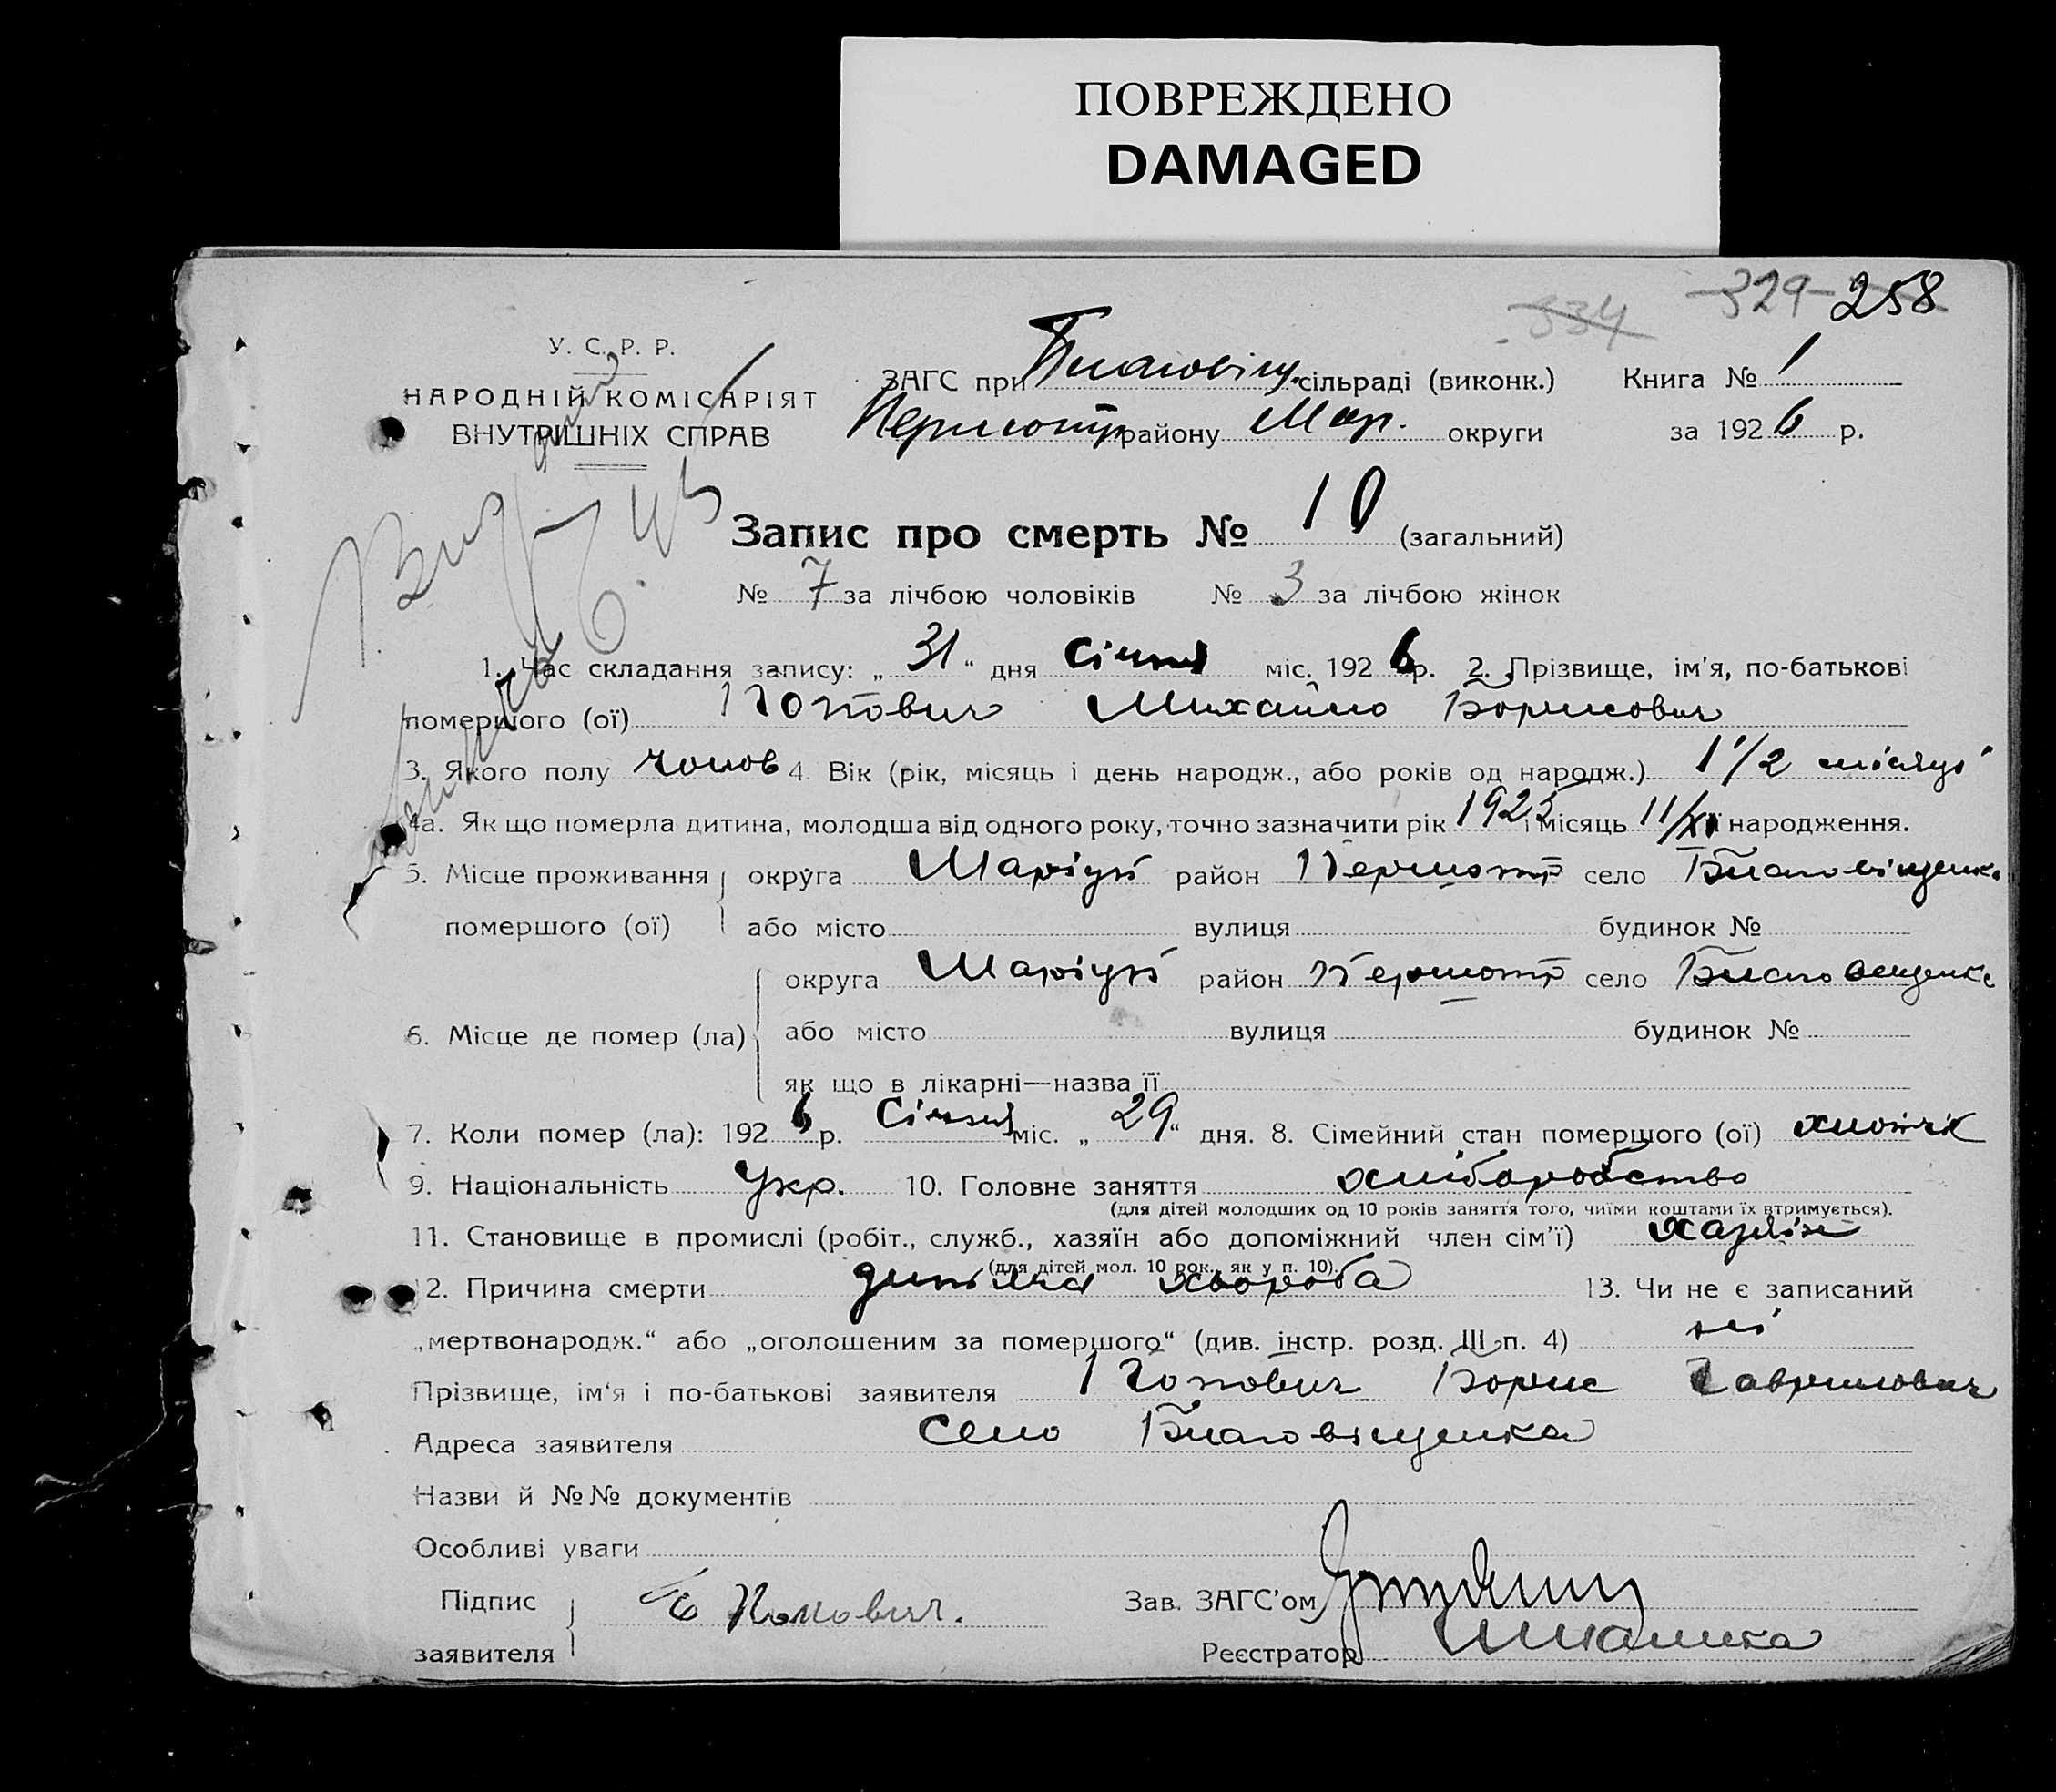 ПОВРЕЖДЕНО
DAMAGED
334 329 258
У. С. Р. Р.
НАРОДНІЙ КОМІСАРІЯТ
ВНУТРІШНІХ СПРАВ
ЗАГС при Благовіщ. сільраді (виконк.) Книга № 1
району Мар. округи за 1926 р.
Запис про смерть № 10 (загальний)
№ 7 за лічбою чоловіків № 3 за лічбою жінок
1. Час складання запису: „31“ дня Січня міс. 1926 р. 2. Прізвище, ім'я, по-батькові
помершого (ої) Попович Михайло Борисович
3. Якого полу чолов 4. Вік (рік, місяць і день народж., або років од народж.) 1 1/2 місяці
4а. Як що померла дитина, молодша від одного року, точно зазначити рік 1925 і місяць 11/XII народження.
5. Місце проживання округа Маріуп район село Благовіщенка
помершого (ої) або місто вулиця будинок №
округа Маріуп район село Благовещенка
6. Місце де помер (ла) або місто вулиця будинок №
як що в лікарні—назва її
7. Коли помер (ла): 1926 р. Січня міс. „29“ дня. 8. Сімейний стан помершого (ої) хлопчік
9. Національність Укр. 10. Головне заняття хліборобство
(для дітей молодших од 10 років заняття того, чиїми коштами їх втримується).
11. Становище в промислі (робіт., служб., хазяїн або допоміжний член сім'ї) хазяїн
(для дітей мол. 10 рок., як у п. 10).
12. Причина смерти дитяча хвороба 13. Чи не є записаний
„мертвонародж.“ або „оголошеним за помершого“ (див. інстр. розд. III п. 4) ні
Прізвище, ім'я і по-батькові заявителя Попович Борис Гаврилович
Адреса заявителя село Благовіщенка
Назви й №№ документів
Особливі уваги
Підпис Б Попович. Зав. ЗАГС'ом
заявителя Реєстратор